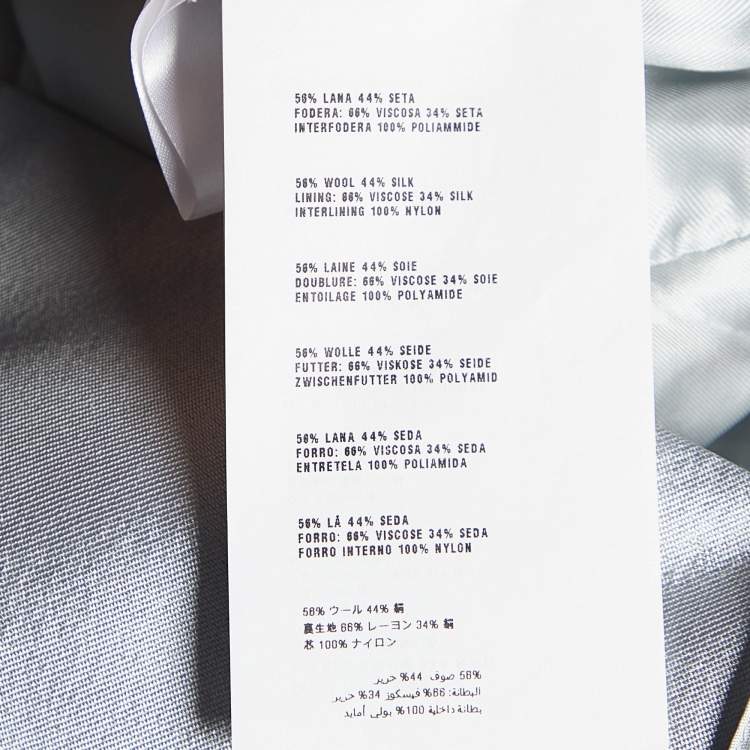 56% LANA 44% SETA
FODERA: 66% VISCOSA 34% SETA
INTERFODERA 100% POLIAMMIDE
56% WOOL 44% SILK
LINING: 66% VISCOSE 34% SILK
INTERLINING 100% NYLON
56% LAINE 44% SOIE
DOUBLURE: 66% VISCOSE 34% SOIE
ENTOILAGE 100% POLYAMIDE
56% WOLLE 44% SEIDE
FUTTER: 66% VISKOSE 34% SEIDE
ZWISCHENFUTTER 100% POLYAMID
56% LANA 44% SEDA
FORRO: 66% VISCOSA 34% SEDA
ENTRETELA 100% POLIAMIDA
56% LÃ 44% SEDA
FORRO: 66% VISCOSE 34% SEDA
FORRO INTERNO 100% NYLON
56% ウール 44% 絹
裏生地 66% レーヨン 34% 絹
芯 100% ナイロン
56% صوف 44% حرير
البطانة: 66% فيسكوز 34% حرير
بطانة داخلية 100% بولي أمايد